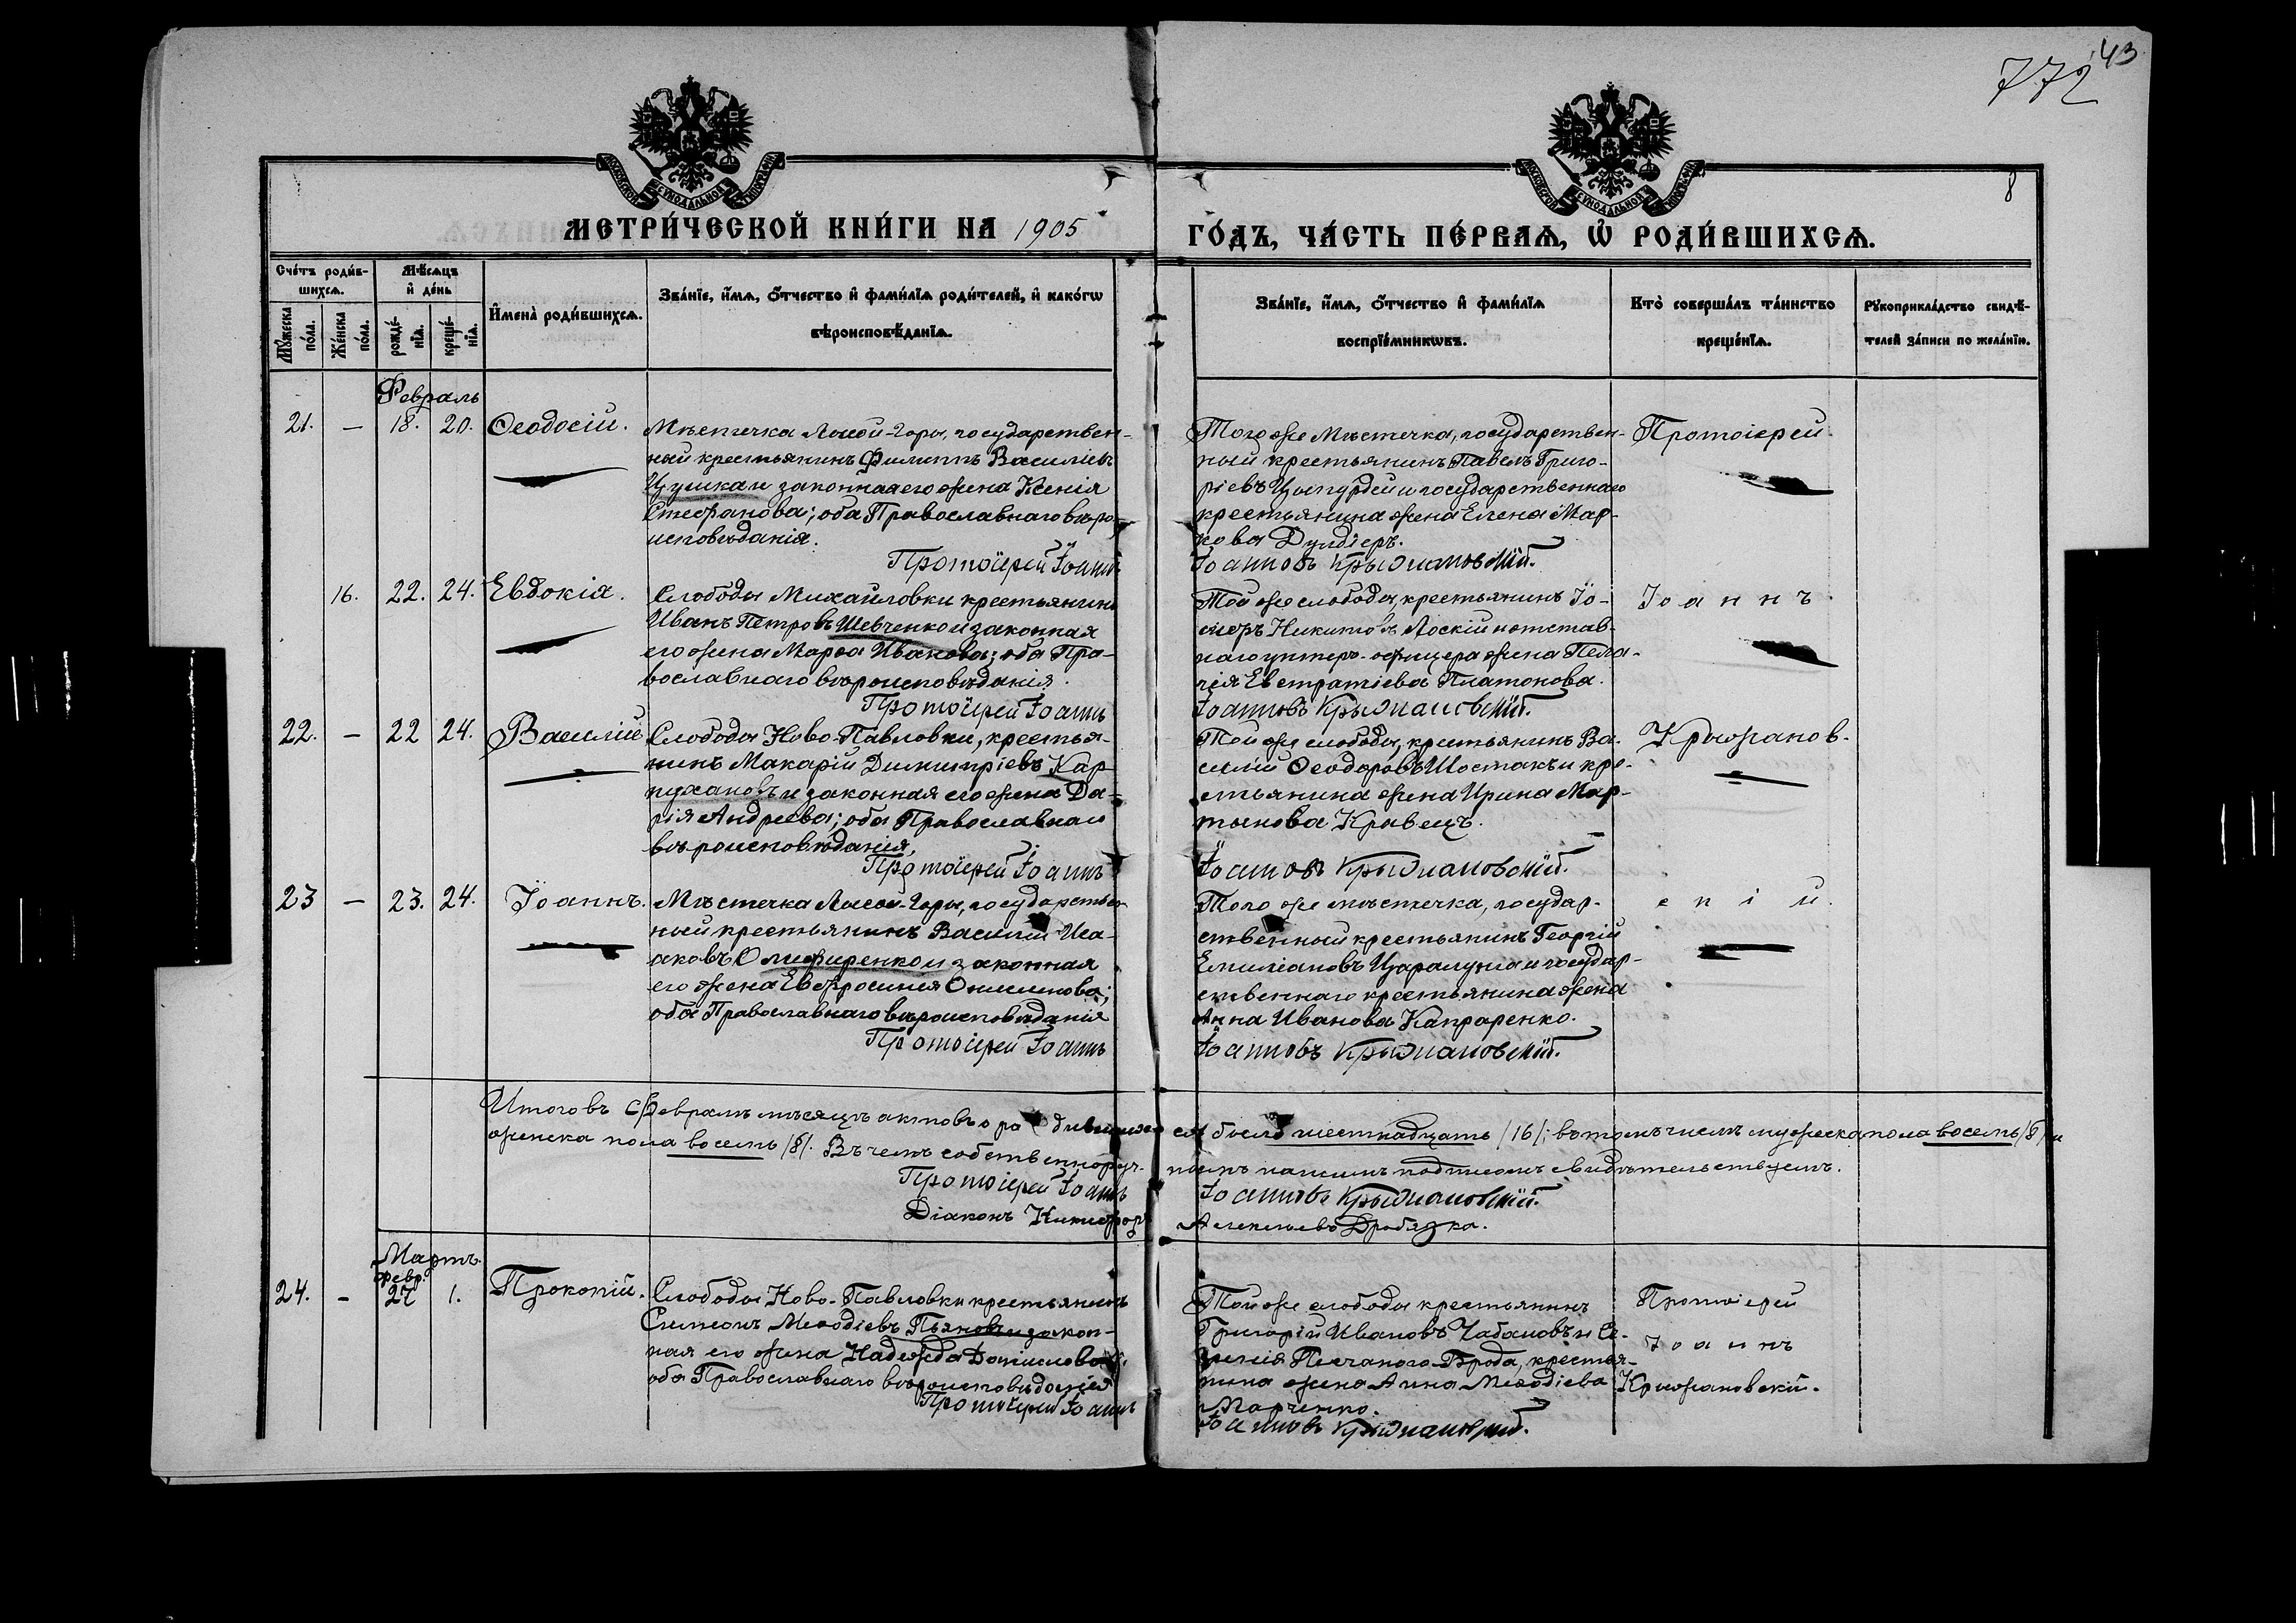 43
772
8
МЕТРИ́ЧЕСКОЙ КНИ́ГИ НА 1905
ГО́ДЪ, ЧА́СТЬ ПЕ́РВАѦ, Ѡ҆ РОДИ́ВШИХСѦ.
Сче́тъ роди́в-
шихсѧ.
Мѣ́сѧцъ
и҆ де́нь
Мꙋ́жеска
по́ла.
Же́нска
по́ла.
рожде́-
нїѧ.
креще́-
нїѧ.
И҆мена̀ роди́вшихсѧ.
Зва́нїе, и҆́мѧ, ѻ҆́тчество и҆ фами́лїѧ роди́телей, и҆ како́гѡ
вѣроисповѣ́данїѧ.
Зва́нїе, и҆́мѧ, ѻ҆́тчество и҆ фами́лїѧ
воспрїе́мникѡвъ.
Кто̀ соверша́лъ та́инство
креще́нїѧ.
Рꙋкоприкла́дство свидѣ́-
телей за́писи по жела́нїю.
Февраль
21. — 18. 20. Ѳеодосій.
Мѣстечка Лысой-Горы, государствен-
ный крестьянинъ Филиппъ Василіевъ
Цушка и законная его жена Ксенія
Стефанова; оба Православнаго вѣро-
исповѣданія.
Протоіерей Іоаннъ
Того же Мѣстечка, государствен-
ный крестьянинъ Павелъ Григо-
ріевъ и государственнаго
крестьянина жена Елена Мар-
кова Дулдіеръ.
Іоанновъ Крыжановскій.
Протоіерей
16. 22. 24. Евдокія.
Слободы Михайловки крестьянинъ
Иванъ Петровъ Шевченко и законная
его жена Марѳа Иванова; оба Пра-
вославнаго вѣроисповѣданія.
Протоіерей Іоаннъ
Той же слободы, крестьянинъ Іо-
сифъ Никитовъ Лоскій и отстав-
наго унтеръ-офицера жена Пела-
гія Евстратіева Платонова.
Іоанновъ Крыжановскій.
Іоаннъ
22. — 22 24. Василій
Слободы Ново-Павловки, крестья-
нинъ Макарій Димитріевъ Кар-
пухановъ и законная его жена Да-
рія Андреева; оба Православнаго
вѣроисповѣданія.
Протоіерей Іоаннъ
Той же слободы, крестьянинъ Ва-
силій Ѳеодоровъ Шостакъ и кре-
стьянина жена Ирина Мар-
тынова Кравецъ.
Іоанновъ Крыжановскій.
Крыжанов-
23 — 23. 24. Іоаннъ.
Мѣстечка Лысой-Горы, государствен-
ный крестьянинъ Василій Иса-
аковъ Олифиренко и законная
его жена Евфросинія Онисимова;
оба Православнаго вѣроисповѣданія
Протоіерей Іоаннъ
Того же мѣстечка, государ-
ственный крестьянинъ Георгій
Емиліановъ Царалунга и государ-
ственнаго крестьянина жена
Анна Иванова Капраренко.
Іоанновъ Крыжановскій.
скій.
Итого въ Февралѣ мѣсяцѣ актовъ о родившихся было шестнадцать /16/; въ томъ числѣ мужеска пола восемь /8/ и
женска пола восемь /8/. Въ чемъ собственноруч-нымъ нашимъ подписомъ свидѣтельствуемъ.
Протоіерей Іоаннъ Іоанновъ Крыжановскій.
Діаконъ Никифоръ Алексѣевъ Дробязка.
Мартъ.
февр.
24. - 27 1. Прокопій.
Слободы Ново-Павловки крестьянинъ
Симеонъ Меѳодіевъ Пьяновъ и закон-
ная его жена Надежда Даніилова;
оба Православнаго вѣроисповѣданія
Протоіерей Іоаннъ
Той же слободы крестьянинъ
Григорій Ивановъ Чабановъ и Се-
ленія Песчаного-Брода, крестья-
нина жена Анна Меѳодіева
Марченко.
Іоанновъ Крыжановскій.
Протоіерей
Іоаннъ
Крыжановскій.